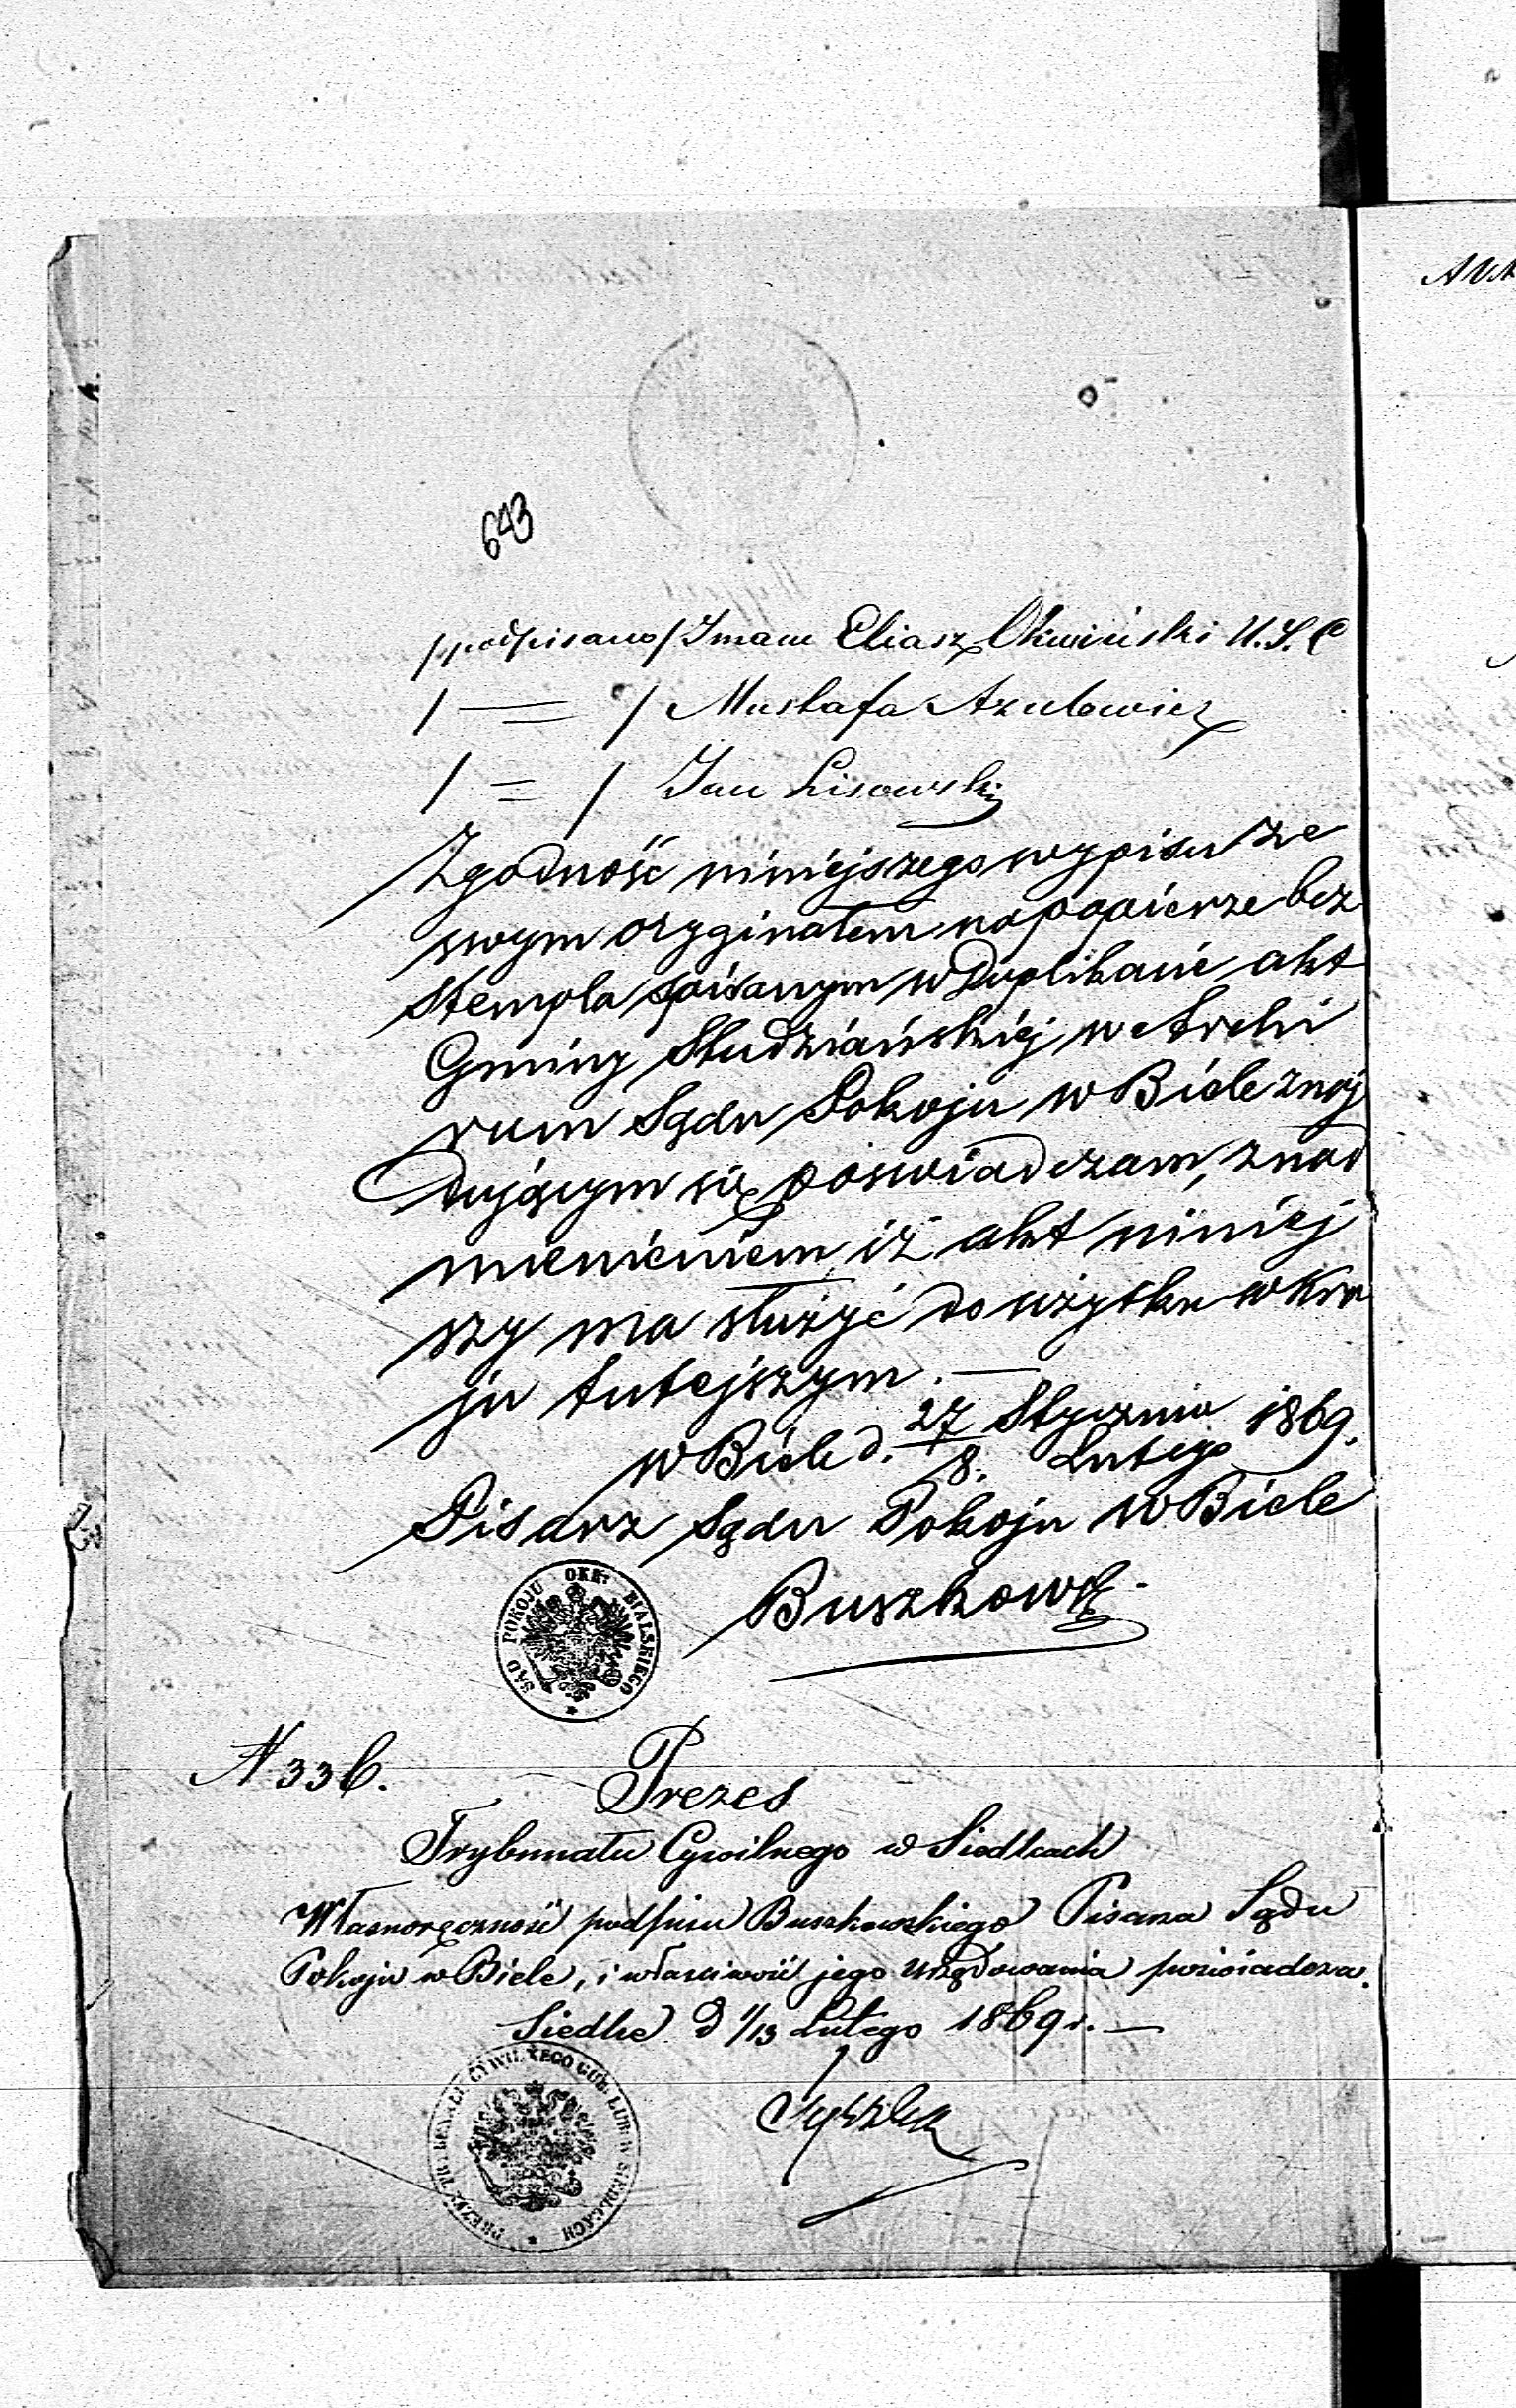 643
/podpisano/ Imam Eliasz Okwiński U.S.C
/ — = / Mustafa Azulewicz
/ = / Jan Lisowski
Zgodność niniejszego wypisu ze
swym oryginałem na papierze bez
stempla spisanym w Duplikacie akt
Gminy Studziańskiéj w Archi
vum Sądu Pokoju w Biele znaj
dującym się poświadczam, z nad
mienieniem, iż akt niniej
szy ma służyć do użytku w Kra
ju tutejszym. —
w Biele d. 27/8. Stycznia/Lutego 1869.
Pisarz Sądu Pokoju w Biele
Buszkows
SĄD POKOJU OKR: BIALSKIEGO
N 336.
Prezes
Trybunału Cywilnego w Siedlcach
Własnoręczność podpisu Buszkowskiego Pisarza Sądu
Pokoju w Biele, i właściwość jego Urzędowania poświadcza.
Siedlce d 1/13 Lutego 1869 r. —
Tyszka
PREZES TRYBUNAŁU CYWILNEGO GUB: LUB: W SIEDLCACH